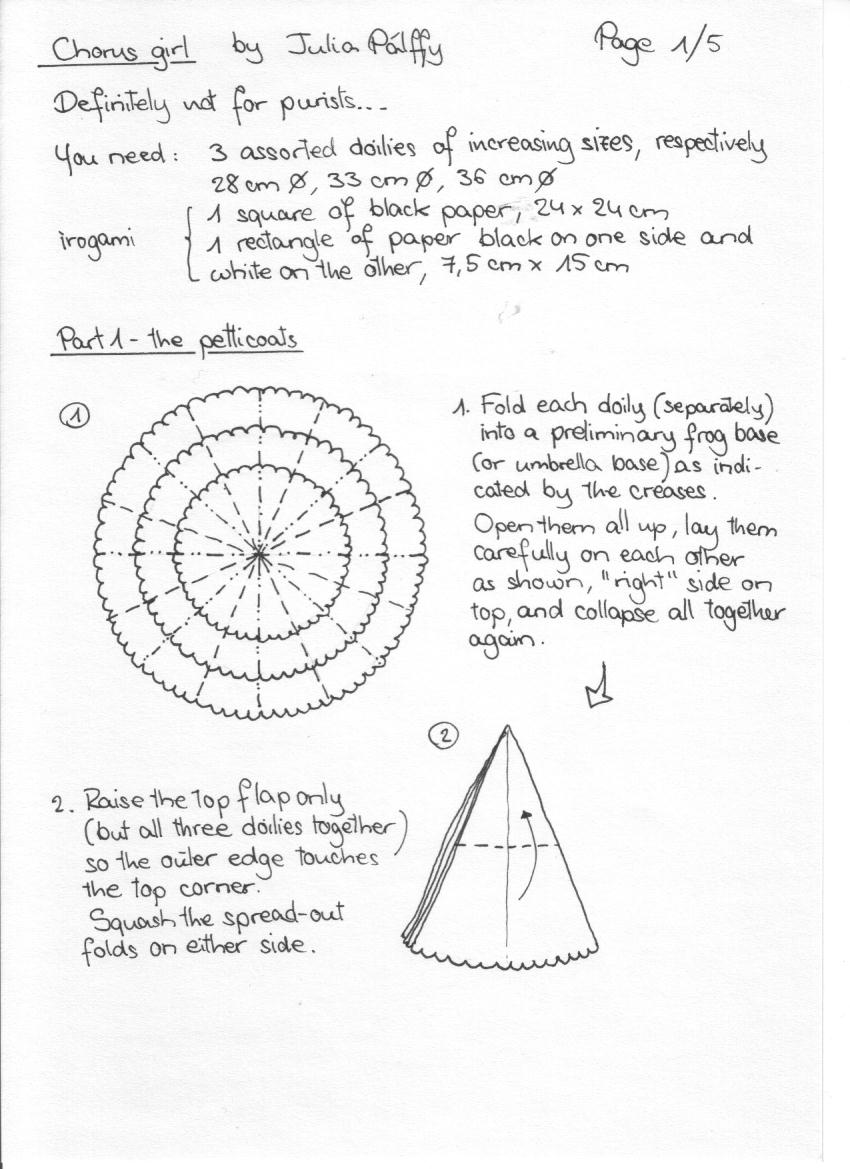 Chorus girl by Julia Pálffy Page 1/5
Definitely not for purists...
You need: 3 assorted doilies of increasing sizes, respectively
28 cm Ø, 33 cm Ø, 36 cm Ø
1 square of black paper, 24 x 24 cm
irogami 1 rectangle of paper black on one side and
white on the other, 7,5 cm x 15 cm
Part 1 - the petticoats
1
1. Fold each doily (separately)
into a preliminary frog base
(or umbrella base) as indi-
cated by the creases.
Open them all up, lay them
carefully on each other
as shown, "right" side on
top, and collapse all together
again.
2
2. Raise the top flap only
(but all three doilies together)
so the outer edge touches
the top corner.
Squash the spread-out
folds on either side.